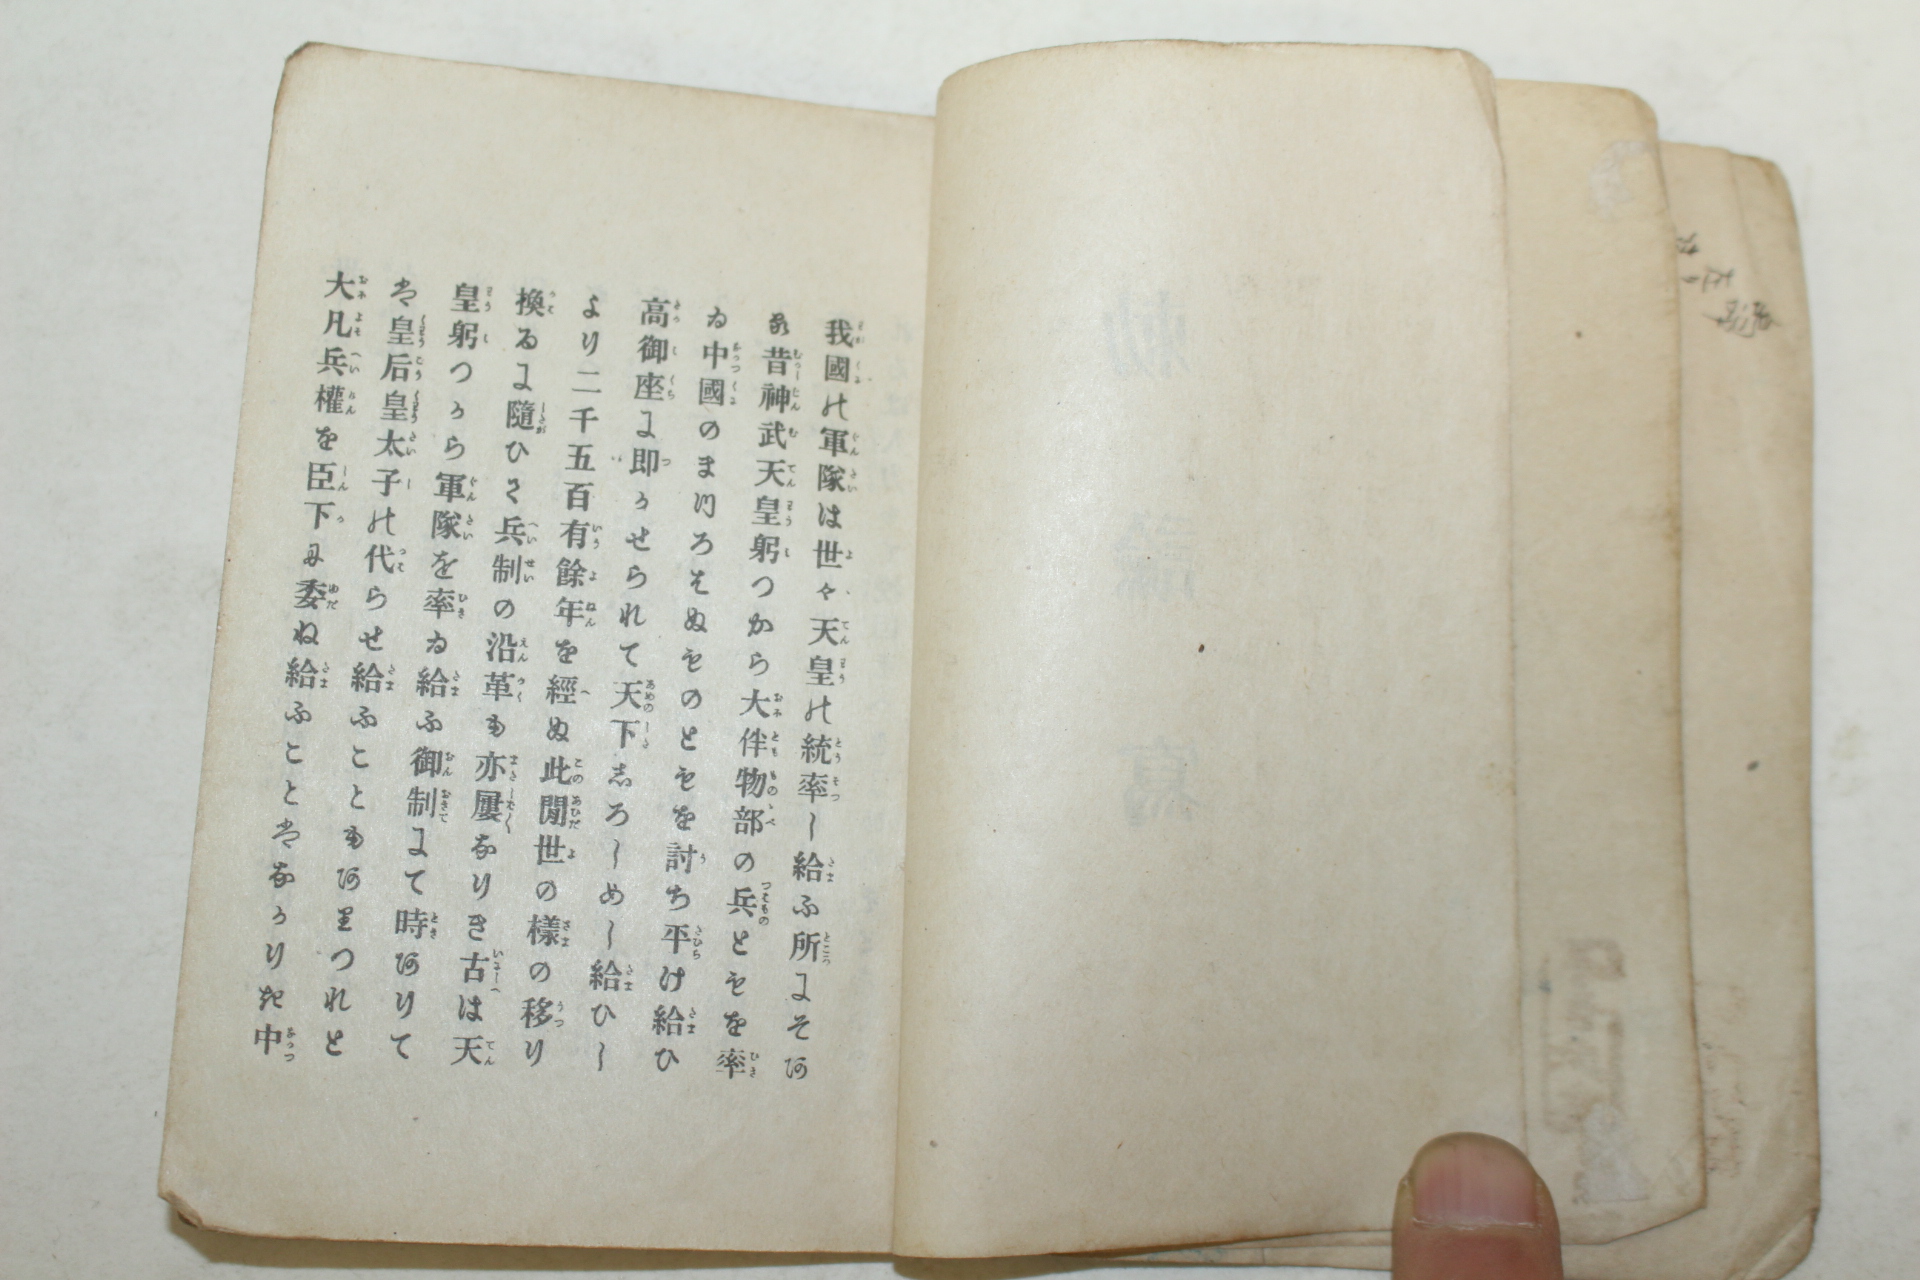 我國の軍隊は世々天皇の統率し給ふ所にそあ
る昔神武天皇躬つから大伴物部の兵ともを率
ゐ中國のまつろはぬものともを討ち平け給ひ
高御座に即かせられて天下しろしめし給ひし
より二千五百有餘年を經ぬ此閒世の樣の移り
換るに隨ひて兵制の沿革も亦屢なりき古は天
皇躬つから軍隊を率ゐ給ふ御制にて時ありて
は皇后皇太子の代らせ給ふこともありつれと
大凡兵權を臣下に委ね給ふことはなかりき中